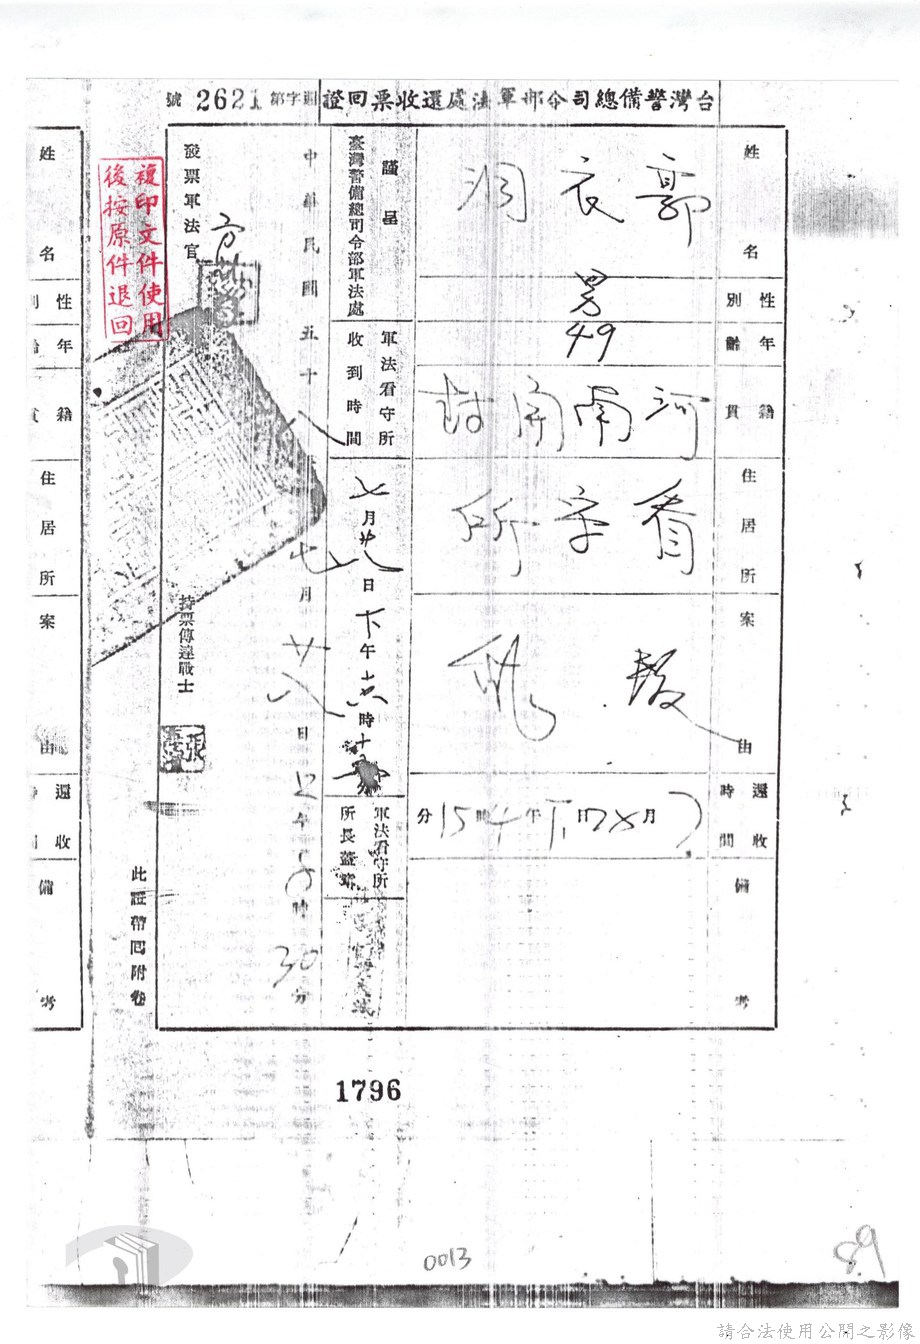 台灣警備總司令部軍法處還收票回證
迴字第 2621 號
姓名
郭衣洞
性別
男
年齡
49
籍貫
河南開封
住居所
看守所
案由
叛亂
還收時間
7月28日下午4時15分
備考
謹呈
臺灣警備總司令部軍法處
軍法看守所收到時間
七月廿八日下午
時
軍法看守所所長蓋章
中華民國五十八年七月廿八日上午
時30分
發票軍法官
方
持票傳達戰士
張
此證帶回附卷
複印文件使用
後按原件退回
姓名
性別
年齡
籍貫
住居所
案由
還收
備考
1796
0013
89
請合法使用公開之影像